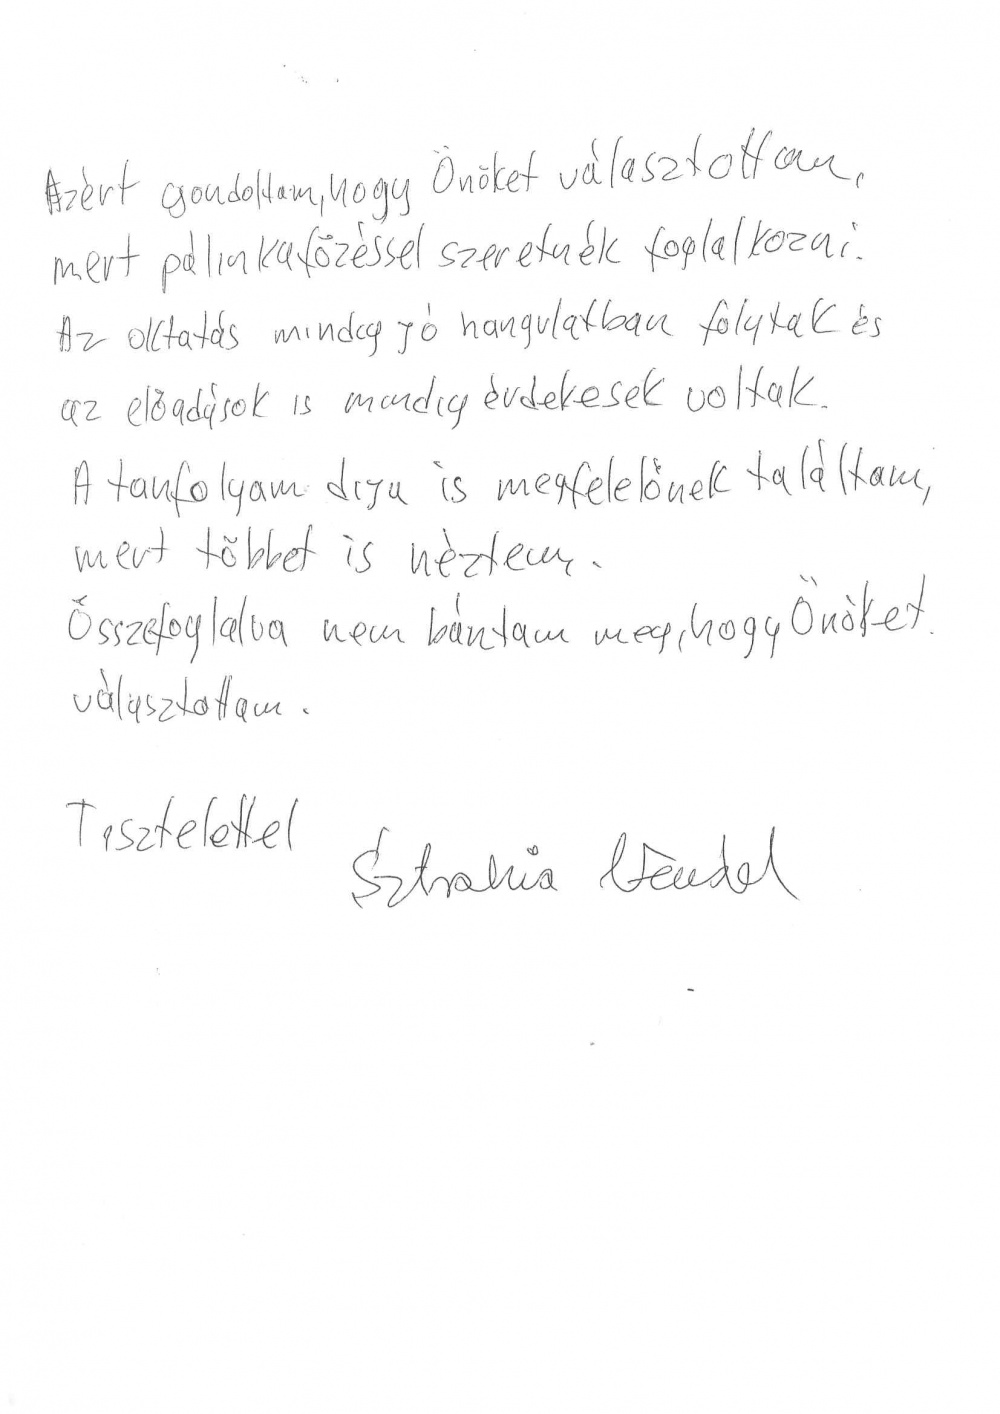 Azért gondoltam, hogy Önöket választottam,
mert pálinkafőzéssel szeretnék foglalkozni.
Az oktatás mindig jó hangulatban folytak és
az előadások is mindig érdekesek voltak.
A tanfolyam dija is megfelelőnek találtam,
mert többet is néztem.
Összefoglalva nem bántam meg, hogy Önöket
választottam.
Tisztelettel